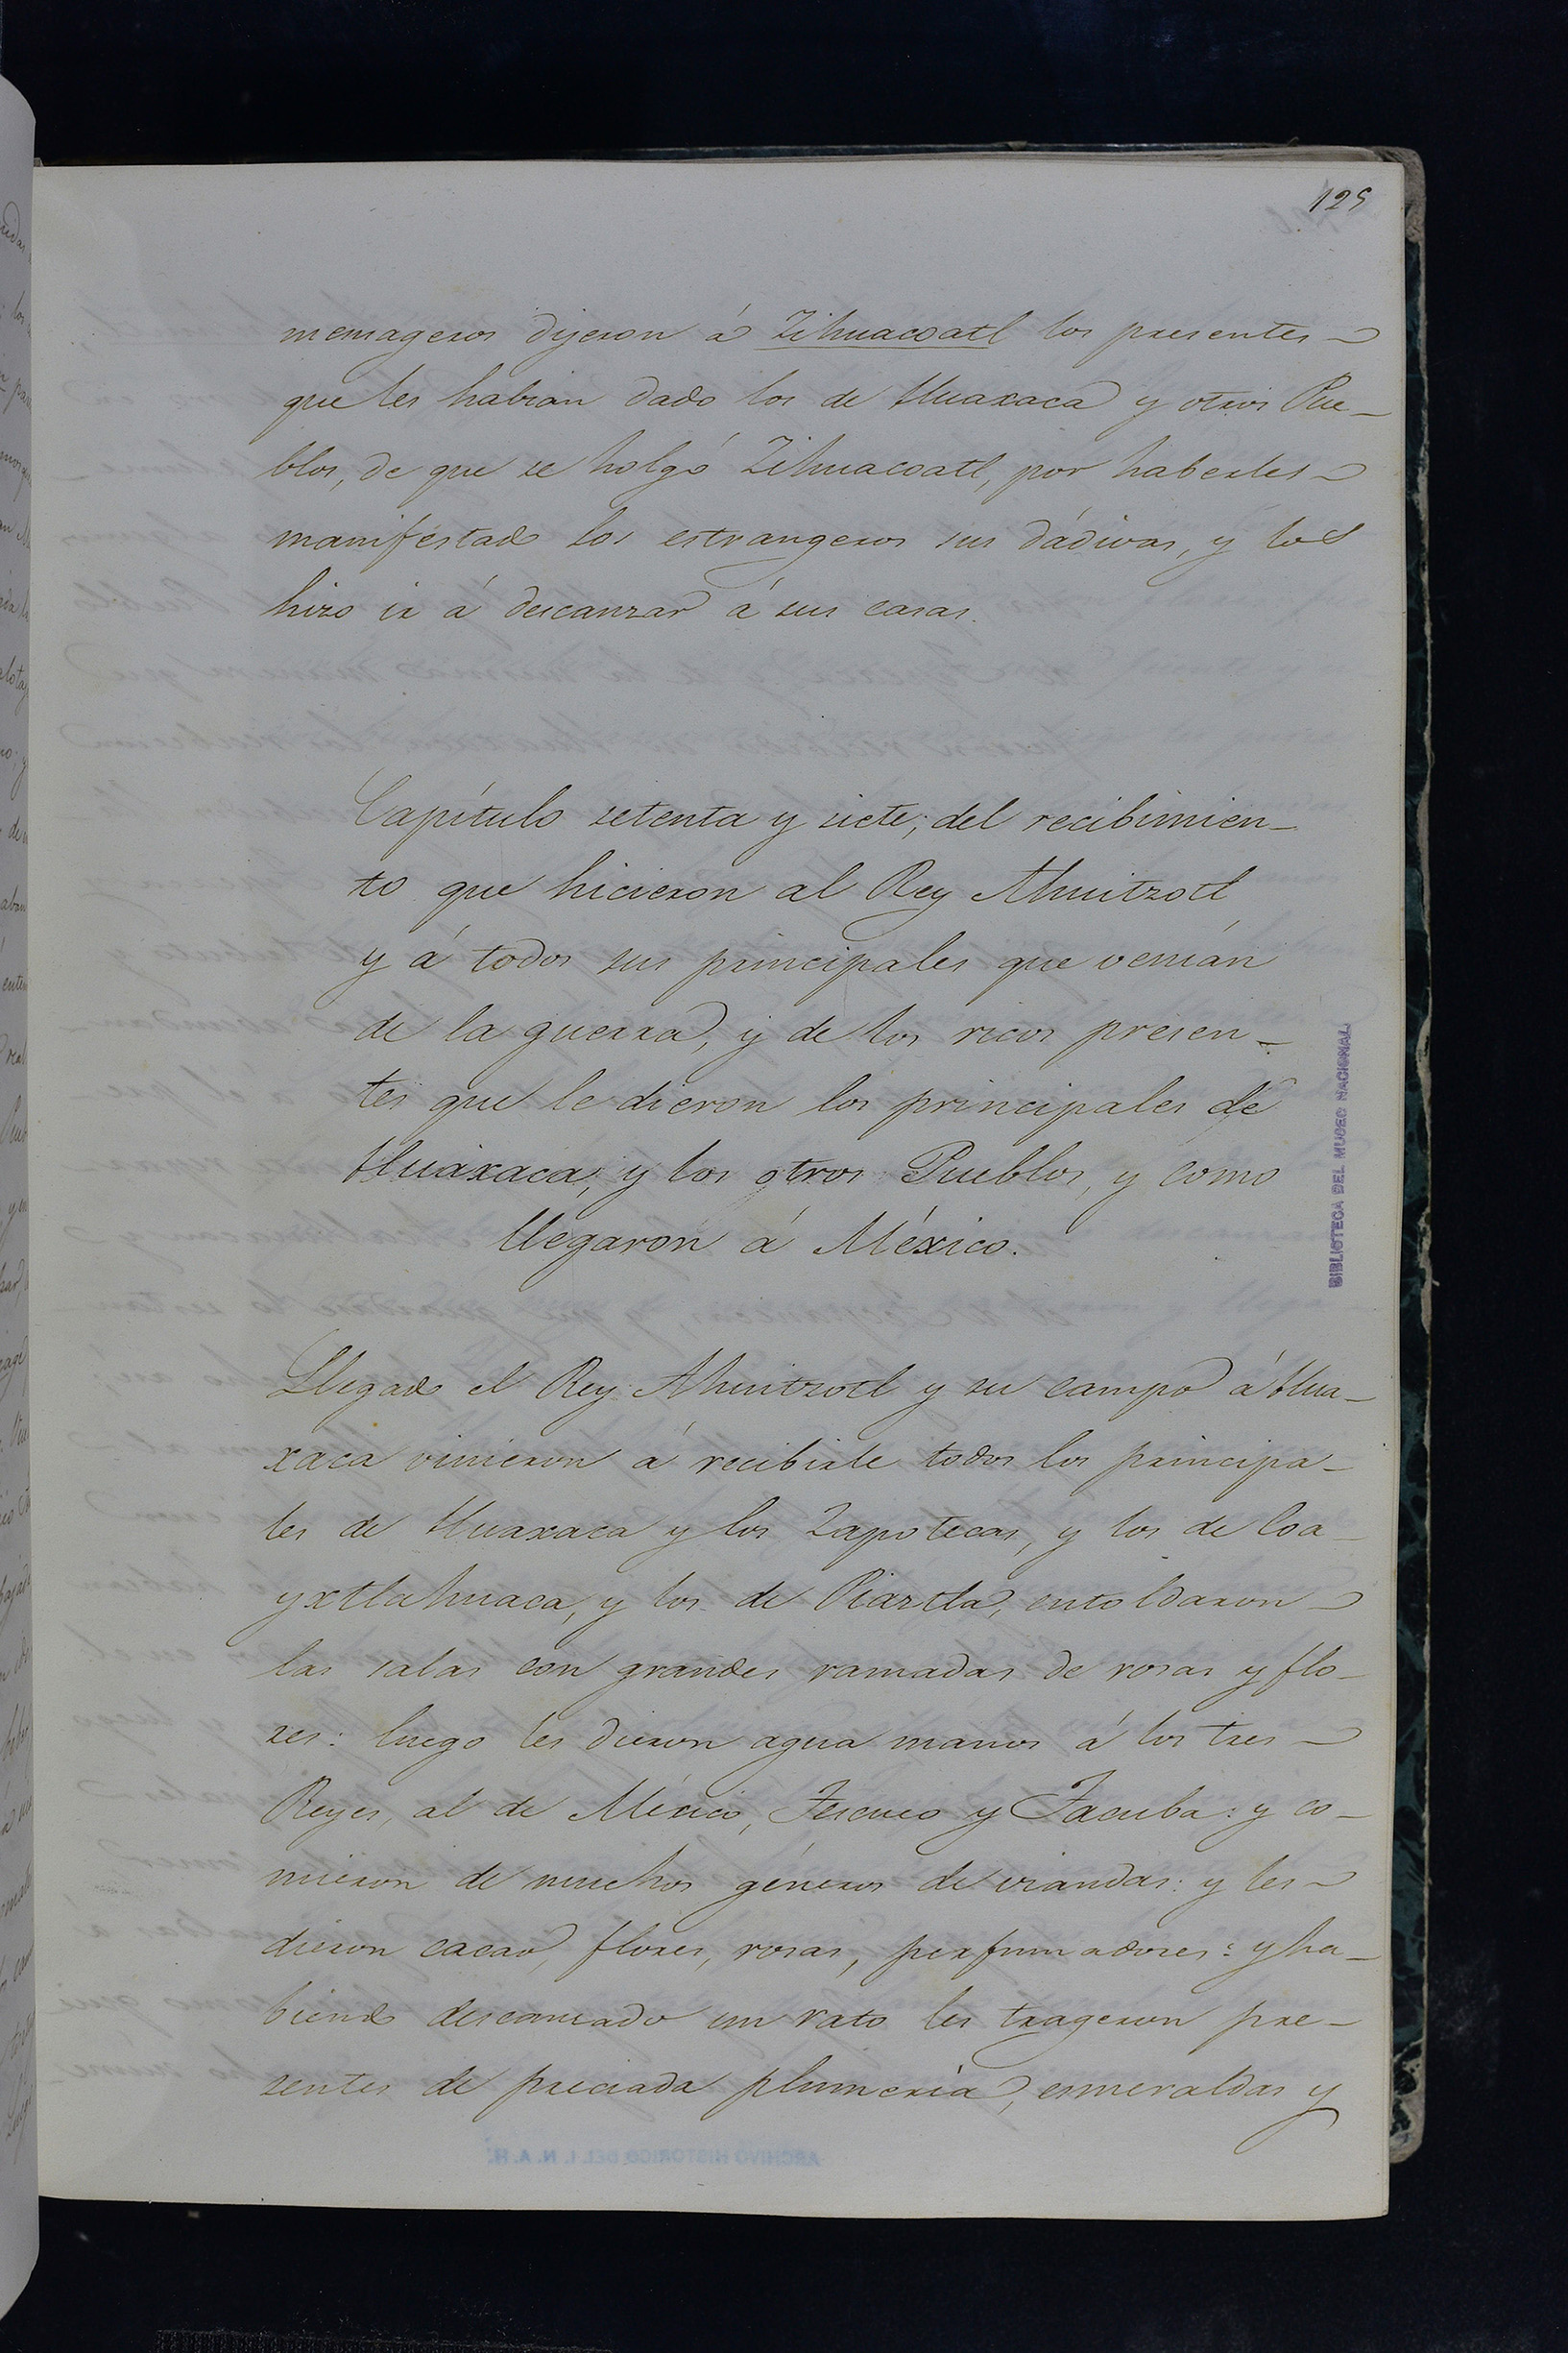 125
mensageros dijeron á Zihuacoatl los presentes
que les habian dado los de Huaxaca y otros Pue-
blos, de que se holgó Zihuacoatl, por haberles
manifestado los estrangeros sus dádivas, y los
hizo ir á descanzar á sus casas.
Capítulo setenta y siete; del recibimien-
to que hicieron al Rey Ahuitzotl
y á todos sus principales que venían
de la guerra, y de los ricos presen-
tes que le dieron los principales de
Huaxaca, y los otros Pueblos, y como
llegaron á México.
Llegado el Rey Ahuitzotl y su campo á Hua-
xaca vinieron á recibirle todos los principa-
les de Huaxaca y los Zapotecas, y los de Coa-
yxtlahuaca, y los de Piaztla, entoldaron
las salas con grandes ramadas de rosas y flo-
res: luego les dieron agua manos á los tres
Reyes, al de México, Tescuco y Tacuba: y co-
mieron de muchos géneros de viandas: y les
dieron cacao, flores, rosas, perfumadores: y ha-
biendo descansado un rato les trageron pre-
sentes de preciada plumeria, esmeraldas y
BIBLIOTECA DEL MUSEO NACIONAL
ARCHIVO HISTORICO DEL I. N. A. H.